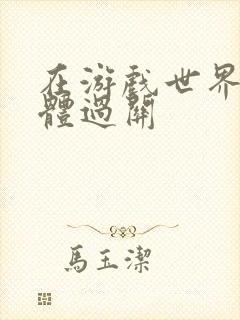 在游戏世界
體過關
馬玉潔